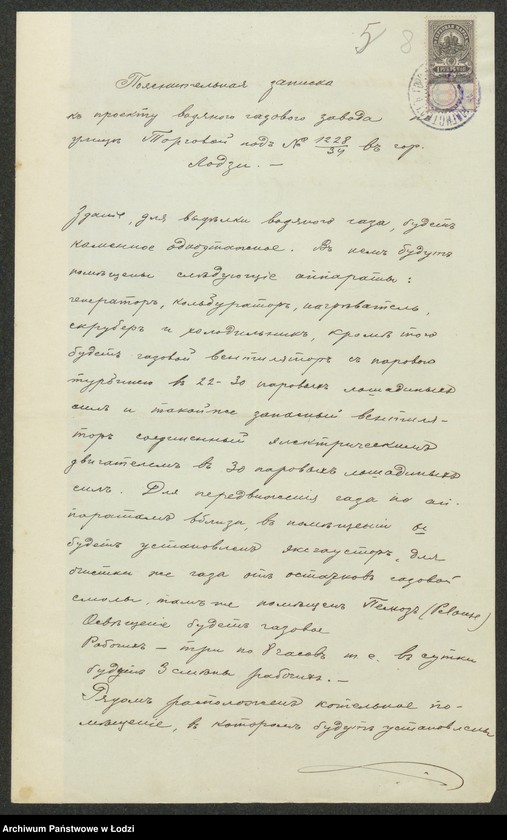 5 8
Пояснительная записка
къ проекту водяного газового завода
улицы Торговой подъ № 1228/34 въ гор.
Лодзи. —
Зданіе, для выдѣлки водяного газа, будетъ
каменное одноэтажное. Въ немъ будутъ
помѣщены слѣдующіе аппараты:
генераторъ, кольбураторъ, нагрѣватель,
скруберъ и холодильникъ, кромѣ того
будетъ газовой вентиляторъ съ паровою
турбиною въ 22-30 паровыхъ лошадиныхъ
силъ и такой же запасный вентиля-
торъ соединенный электрическимъ
двигателемъ въ 30 паровыхъ лошадиныхъ
силъ. Для передвиженія газа по ап-
паратамъ вблизи, въ помѣщеніи
будетъ установленъ эксгаусторъ, для
очистки же газа отъ остатковъ газовой
смолы, тамъ же помѣщенъ Пелюзъ (Pelouse)
Освѣщеніе будетъ газовое
Рабочихъ — три по 8 часовъ т. е. въ сутки
будутъ 3 смѣны рабочихъ. —
Рядомъ расположено котельное по-
мѣщеніе, въ которомъ будутъ установлены
Archiwum Państwowe w Łodzi